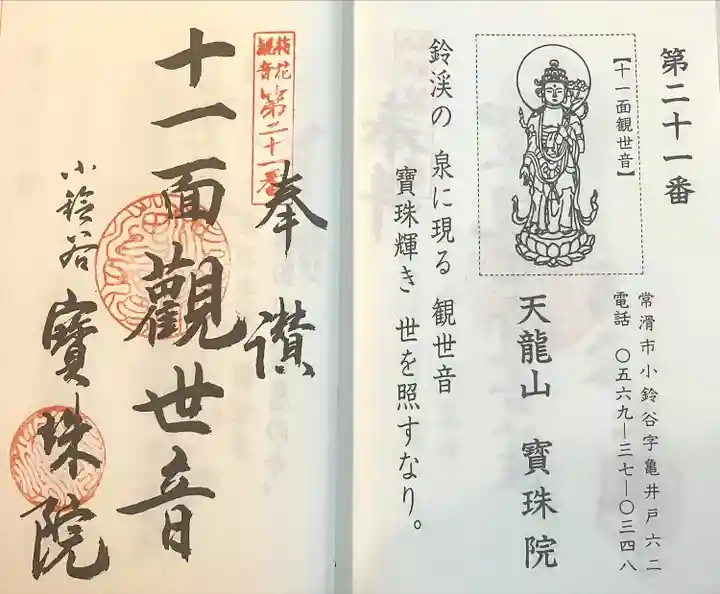 第二十一番
【十一面観世音】
常滑市小鈴谷字亀井戸六二
電話 〇五六九ー三七ー〇三四八
天龍山 寶珠院
鈴渓の 泉に現る 観世音
寶珠輝き 世を照すなり。
梅花
観音
第二十一番
奉讃
十一面觀世音
小鈴谷
寶珠院